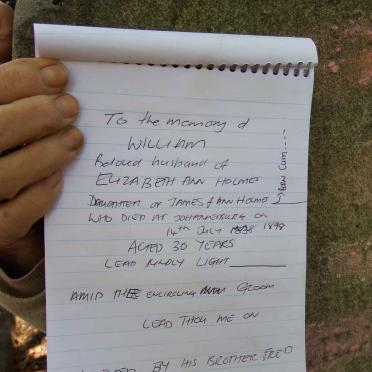 To the memory of
WILLIAM
Beloved husband of
ELIZABETH ANN HOLME
DAUGHTER OF JAMES & ANN HOLMES
WHO DIED AT JOHANNESBURG ON
14th JULY 1898
AGED 30 YEARS
LEAD KINDLY LIGHT
AMID THE ENCIRCLING GLOOM
LEAD THOU ME ON
BY HIS BROTHER FRED